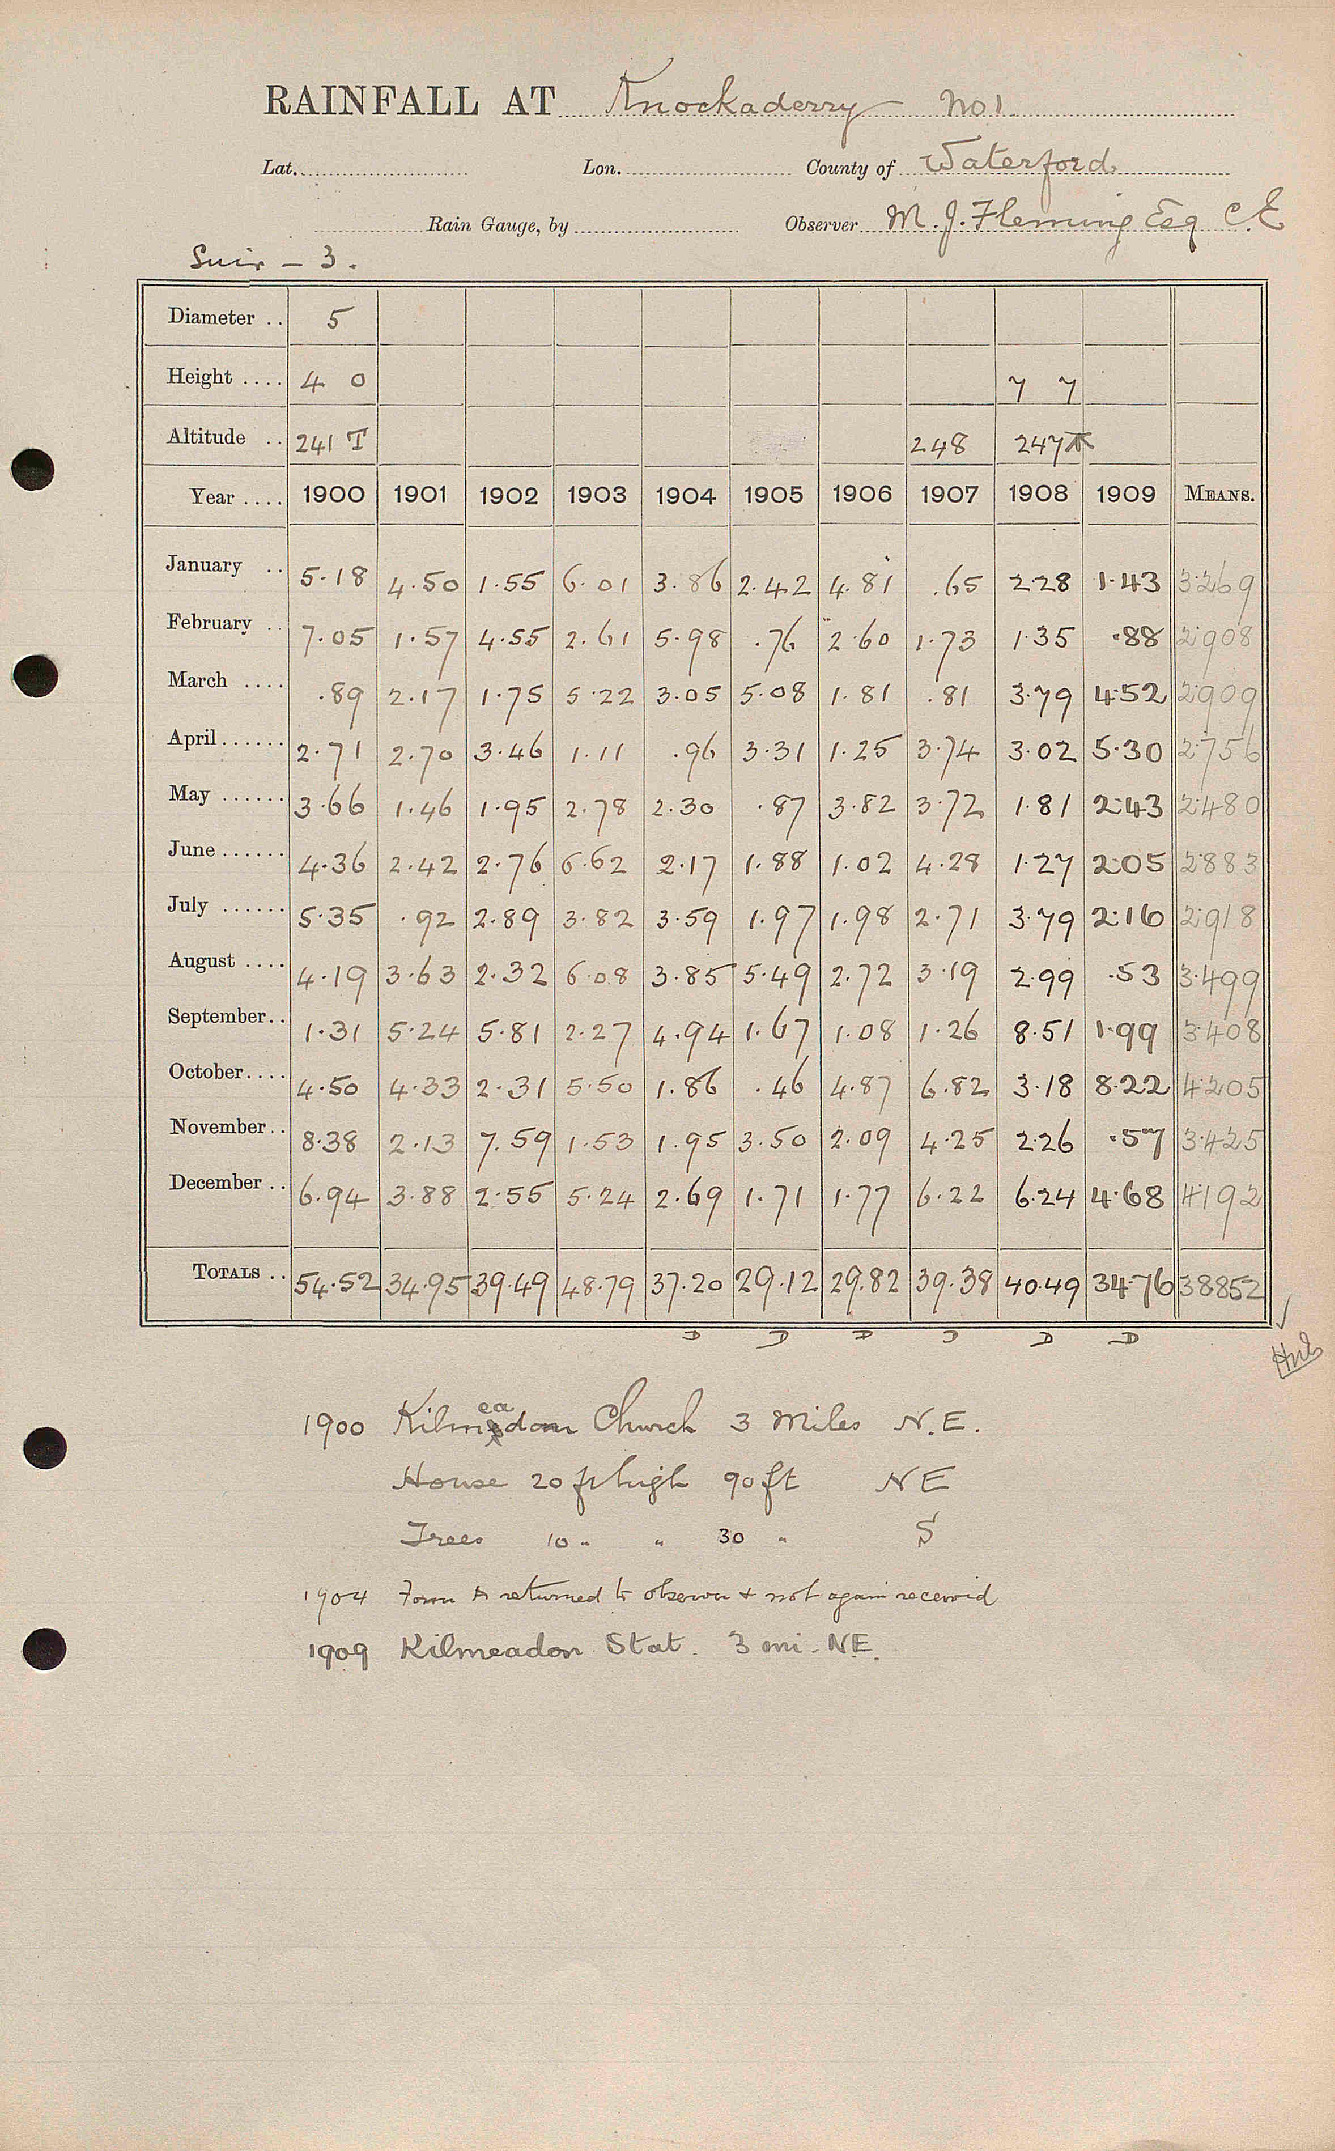 RAINFALL AT Knockaderry No 1
Lat. Lon. County of Waterford
Rain Gauge, by Observer M. J. Fleming Esq C.E
Suir - 3.
Diameter .. 5
Height .... 4 0 7 7
Altitude .. 241 T 248 247 T
Year .... 1900 1901 1902 1903 1904 1905 1906 1907 1908 1909 MEANS.
January .. 5.18 4.50 1.55 6.01 3.86 2.42 4.81 .65 2.28 1.43 3.269
February .. 7.05 1.57 4.55 2.61 5.98 .76 2.60 1.73 1.35 .88 2.908
March .... .89 2.17 1.75 5.22 3.05 5.08 1.81 .81 3.79 4.52 2.909
April...... 2.71 2.70 3.46 1.11 .96 3.31 1.25 3.74 3.02 5.30 2.756
May ...... 3.66 1.46 1.95 2.78 2.30 .87 3.82 3.72 1.81 2.43 2.480
June...... 4.36 2.42 2.76 6.62 2.17 1.88 1.02 4.28 1.27 2.05 2.883
July ...... 5.35 .92 2.89 3.82 3.59 1.97 1.98 2.71 3.79 2.16 2.918
August .... 4.19 3.63 2.32 6.08 3.85 5.49 2.72 3.19 2.99 .53 3.499
September.. 1.31 5.24 5.81 2.27 4.94 1.67 1.08 1.26 8.51 1.99 3.408
October.... 4.50 4.33 2.31 5.50 1.86 .46 4.87 6.82 3.18 8.22 4.205
November.. 8.38 2.13 7.59 1.53 1.95 3.50 2.09 4.25 2.26 .57 3.425
December .. 6.94 3.88 2.55 5.24 2.69 1.71 1.77 6.22 6.24 4.68 4.192
TOTALS .. 54.52 34.95 39.49 48.79 37.20 29.12 29.82 39.38 40.49 34.76 38852
D D D D D D
1900 Kilmeadon Church 3 Miles N.E.
House 20 ft high 90 ft NE
Trees 10 " " 30 " S
1904 Form A returned to observer & not again received
1909 Kilmeadon Stat. 3 mi. NE.